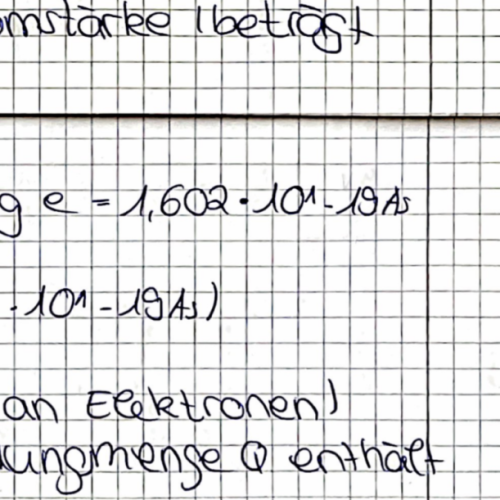 omstärke I beträgt
g e = 1,602 · 10^-19 As
· 10^-19 As)
an Elektronen)
ungmenge Q enthält